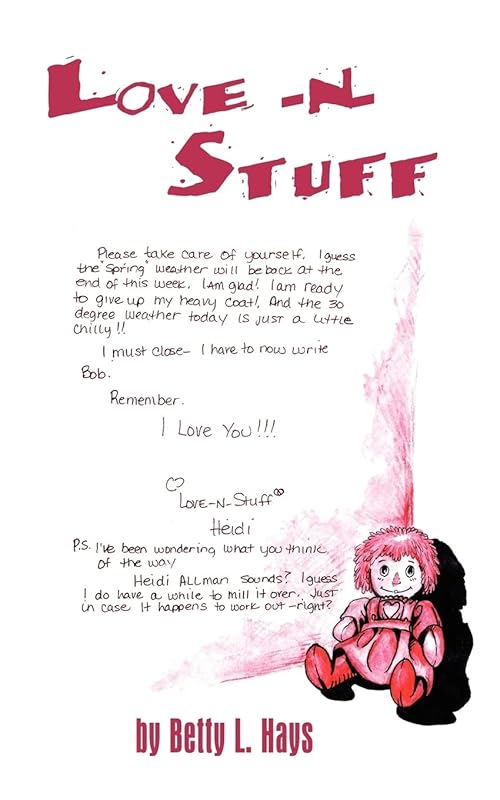 LOVE -N
STUFF
Please take care of yourself. I guess
the "spring" weather will be back at the
end of this week. I am glad! I am ready
to give up my heavy coat! And the 30
degree weather today is just a little
chilly!!
I must close- I have to now write
Bob.
Remember.
I Love You!!!
Love-N-Stuff
Heidi
P.S. I've been wondering what you think
of the way
Heidi Allman sounds? I guess
I do have a while to mill it over. Just
in case it happens to work out -right?
by Betty L. Hays